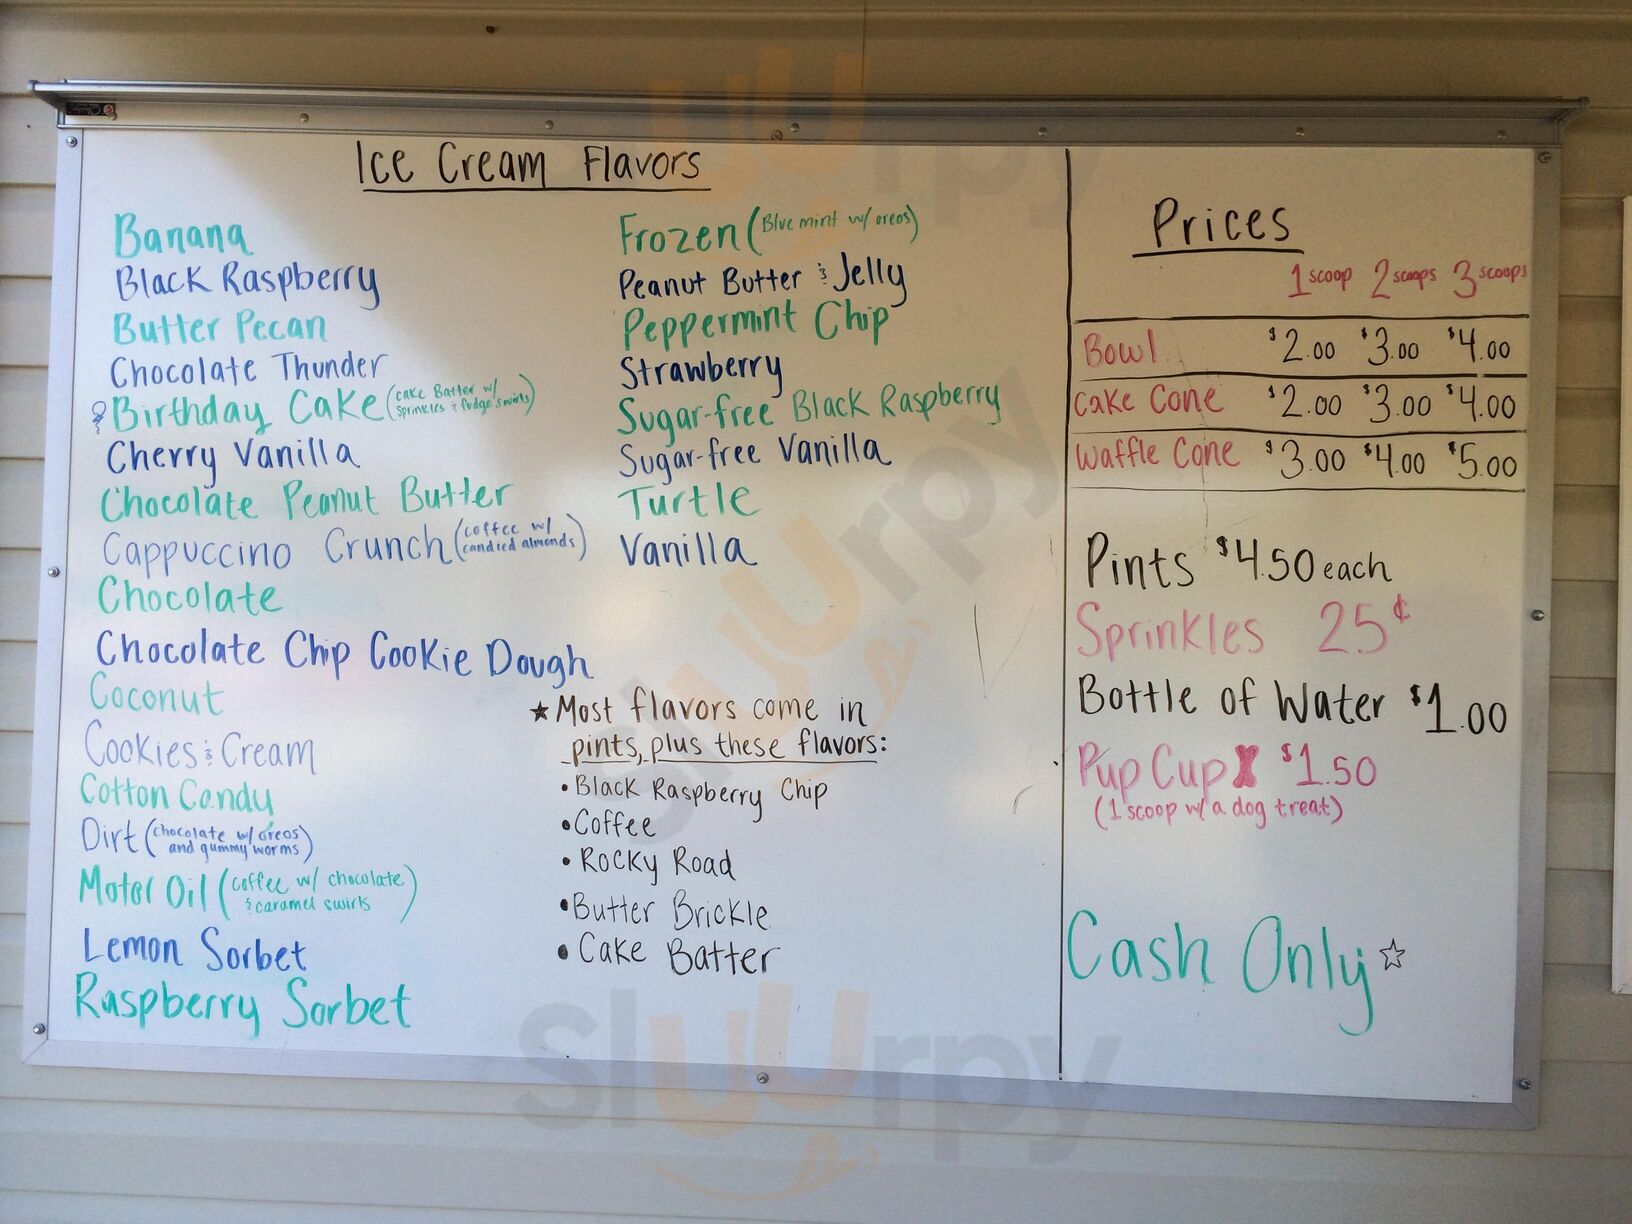 Ice Cream Flavors
Banana
Black Raspberry
Butter Pecan
Chocolate Thunder
Birthday Cake (cake Batter w/
sprinkles & fudge swirls)
Cherry Vanilla
Chocolate Peanut Butter
Cappuccino Crunch (coffee w/
candied almonds)
Chocolate
Chocolate Chip Cookie Dough
Coconut
Cookies & Cream
Cotton Candy
Dirt (chocolate w/ oreos
and gummy worms)
Motor Oil (coffee w/ chocolate
& caramel swirls)
Lemon Sorbet
Raspberry Sorbet
Frozen (Blue mint w/ oreos)
Peanut Butter & Jelly
Peppermint Chip
Strawberry
Sugar-free Black Raspberry
Sugar-free Vanilla
Turtle
Vanilla
★ Most flavors come in
pints, plus these flavors:
• Black Raspberry Chip
• Coffee
• Rocky Road
• Butter Brickle
• Cake Batter
Prices
1 scoop 2 scoops 3 scoops
Bowl $2.00 $3.00 $4.00
Cake Cone $2.00 $3.00 $4.00
Waffle Cone $3.00 $4.00 $5.00
Pints $4.50 each
Sprinkles 25¢
Bottle of Water $1.00
Pup Cup $1.50
(1 scoop w/ a dog treat)
Cash Only ☆
sluurpy
sluurpy
sluurpy